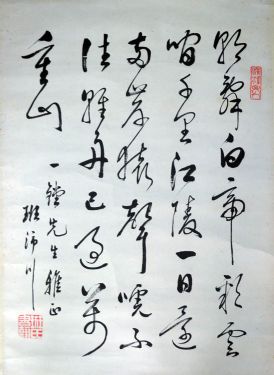 朝辭白帝彩雲
間千里江陵一日還
兩岸猿聲嗁不
住輕舟已過萬
重山
一鏜先生雅正